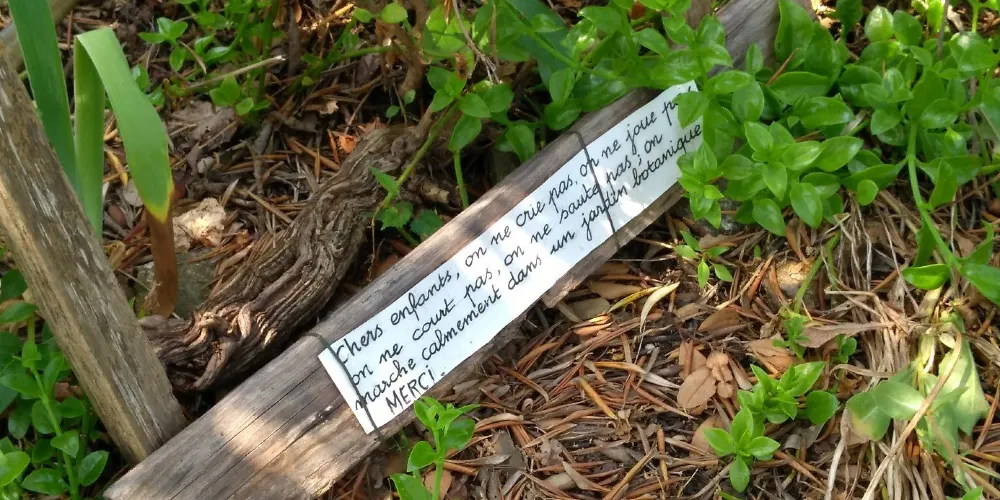 Chers enfants, on ne crie pas, on ne joue pas,
on ne court pas, on ne saute pas, on
marche calmement dans un jardin botanique
MERCI.